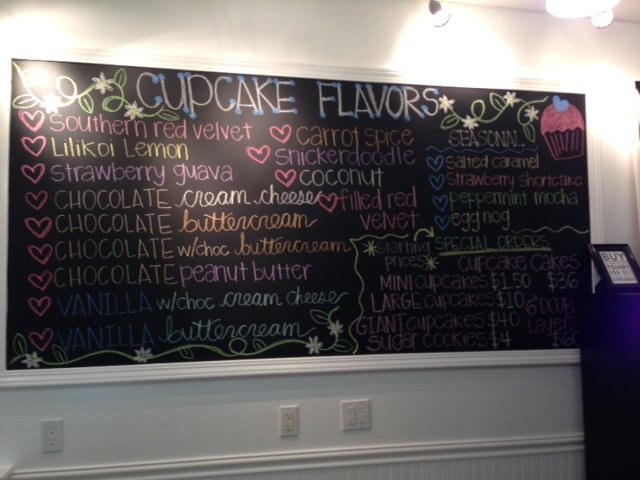 CUPCAKE FLAVORS
Southern red velvet
Lilikoi Lemon
Strawberry guava
CHOCOLATE cream cheese
CHOCOLATE buttercream
CHOCOLATE w/choc buttercream
CHOCOLATE peanut butter
VANILLA w/choc cream cheese
VANILLA buttercream
carrot spice
snickerdoodle
coconut
filled red
velvet
SEASONAL
salted caramel
Strawberry shortcake
peppermint mocha
egg nog
SPECIAL ORDERS
starting
prices
cupcake cakes
MINI cupcakes $1.50 $36
LARGE cupcakes $10
GIANT cupcakes $40
Sugar cookies $4
6" Double
Layers
BUY